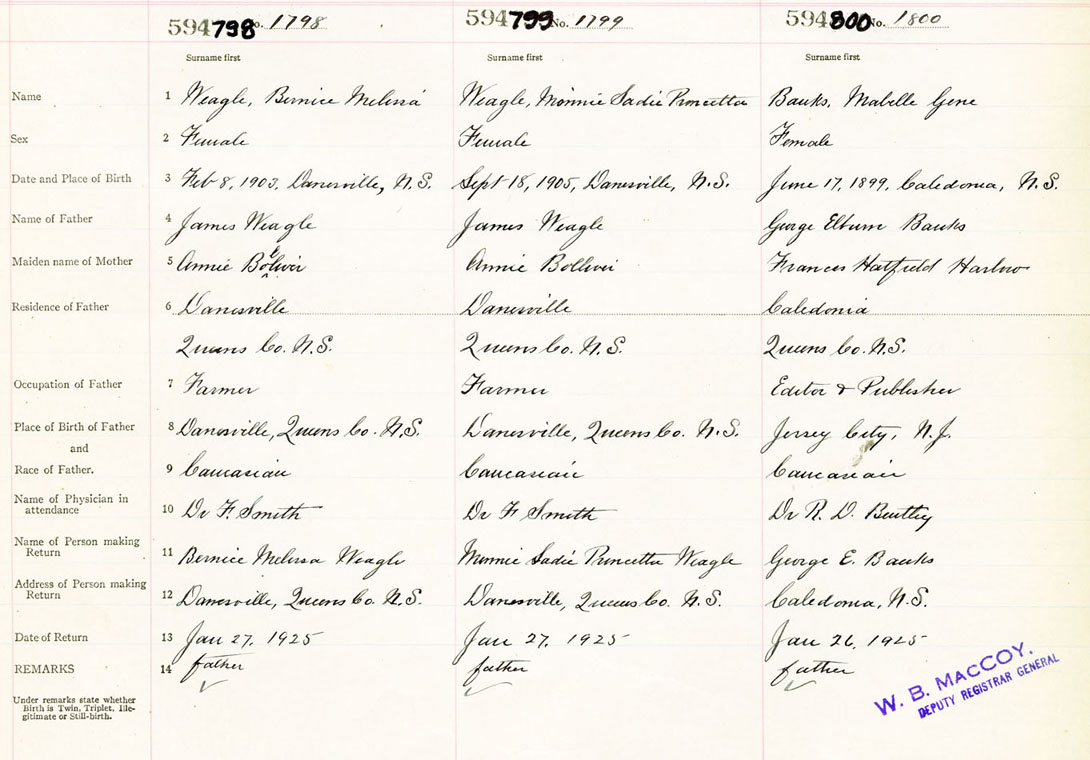 594798 No. 1798 594799 No. 1799 594800 No. 1800
Surname first Surname first Surname first
Name 1 Weagle, Bernice Melissa Weagle, Minnie Sadie Princetta Banks, Mabelle Gene
Sex 2 Female Female Female
Date and Place of Birth 3 Feb 8, 1903, Danesville, N.S. Sept 18, 1905, Danesville, N.S. June 17, 1899, Caledonia, N.S.
Name of Father 4 James Weagle James Weagle George Elburn Banks
Maiden name of Mother 5 Annie Annie Bolliver Frances Hatfield Harlow
Residence of Father 6 Danesville Danesville Caledonia
Queens Co. N.S. Queens Co. N.S. Queens Co. N.S.
Occupation of Father 7 Farmer Farmer Editor & Publisher
Place of Birth of Father 8 Danesville, Queens Co. N.S. Danesville, Queens Co. N.S. Jersey City, N.J.
and
Race of Father. 9 Caucasian Caucasian Caucasian
Name of Physician in
attendance 10 Dr F. Smith Dr F Smith Dr R. D. Bentley
Name of Person making
Return 11 Bernice Melissa Weagle Minnie Sadie Princetta Weagle George E. Banks
Address of Person making
Return 12 Danesville, Queens Co. N.S. Danesville, Queens Co. N.S. Caledonia, N.S.
Date of Return 13 Jan 27, 1925 Jan 27, 1925 Jan 26, 1925
REMARKS 14 father father father
Under remarks state whether
Birth is Twin, Triplet, Ille-
gitimate or Still-birth.
W. B. MACCOY,
DEPUTY REGISTRAR GENERAL